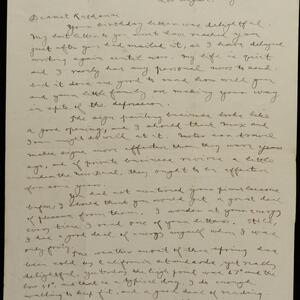 Los Angeles
Dearest Kathona:
Your birthday letter was delightful.
My last letter to you must have reached you
just after you had mailed it, so I have delayed
writing again until now. My life is quiet
and I rarely have any personal news to send
but it does me good to read how well you
and your little family are making your way
in spite of the depression.
The sign painting business looks like
a good opening, and I should think Max and
I won might do well at it. Motor car travel
makes signs more effective than they were years
ago, and if private business revives a little
under the New Deal, they ought to be effective
for some years.
You did not mention your piano lessons
again, I should think you would get a great deal
of pleasure from them. I wonder at your energy
every time I read one of your letters. Still
I had a good deal of energy myself when I was
only forty.
One month of this spring has
been cold by California standards, yet really
delightful. Yesterday the high point was 67° and the
low 51°, and that is a typical day. I do enough
walking to keep fit, and a good deal of reading